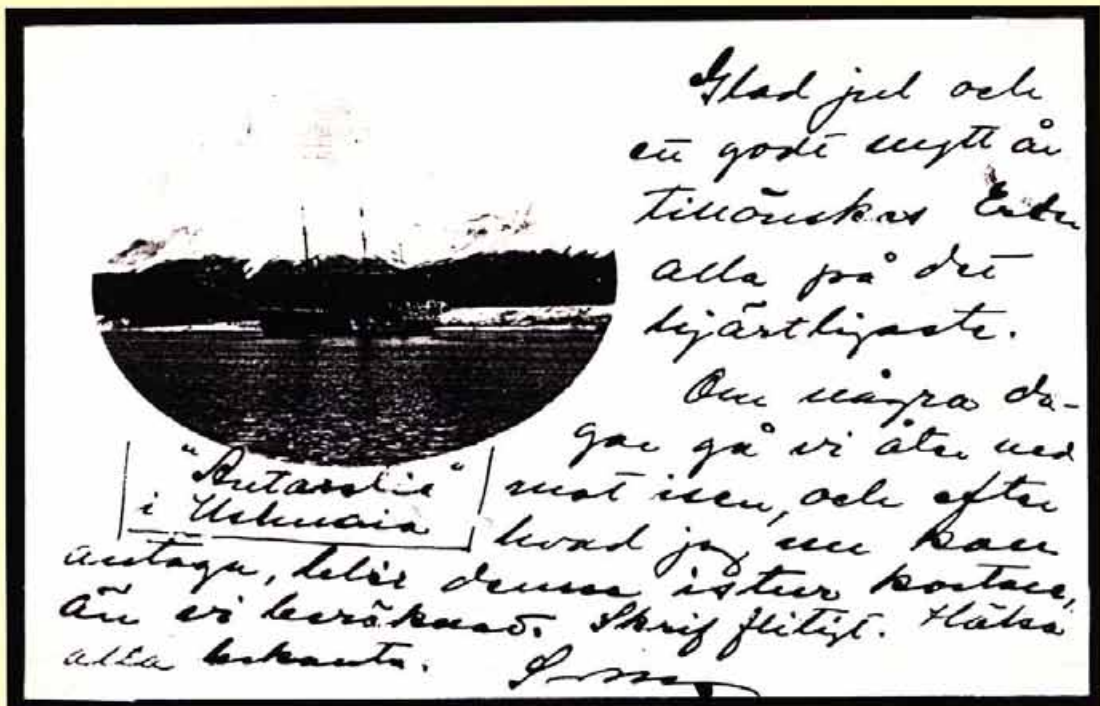 Glad jul och
ett godt nytt år
tillönskas Eder
alla på det
hjärtligaste.
Om några da-
gar gå vi åter ned
mot isen, och efter
hvad jag nu kan
antaga, blir denna istur kortare,
än vi beräknat. Skrif flitigt. Hälsa
alla bekanta.
"Antarctic"
i Ushuaia